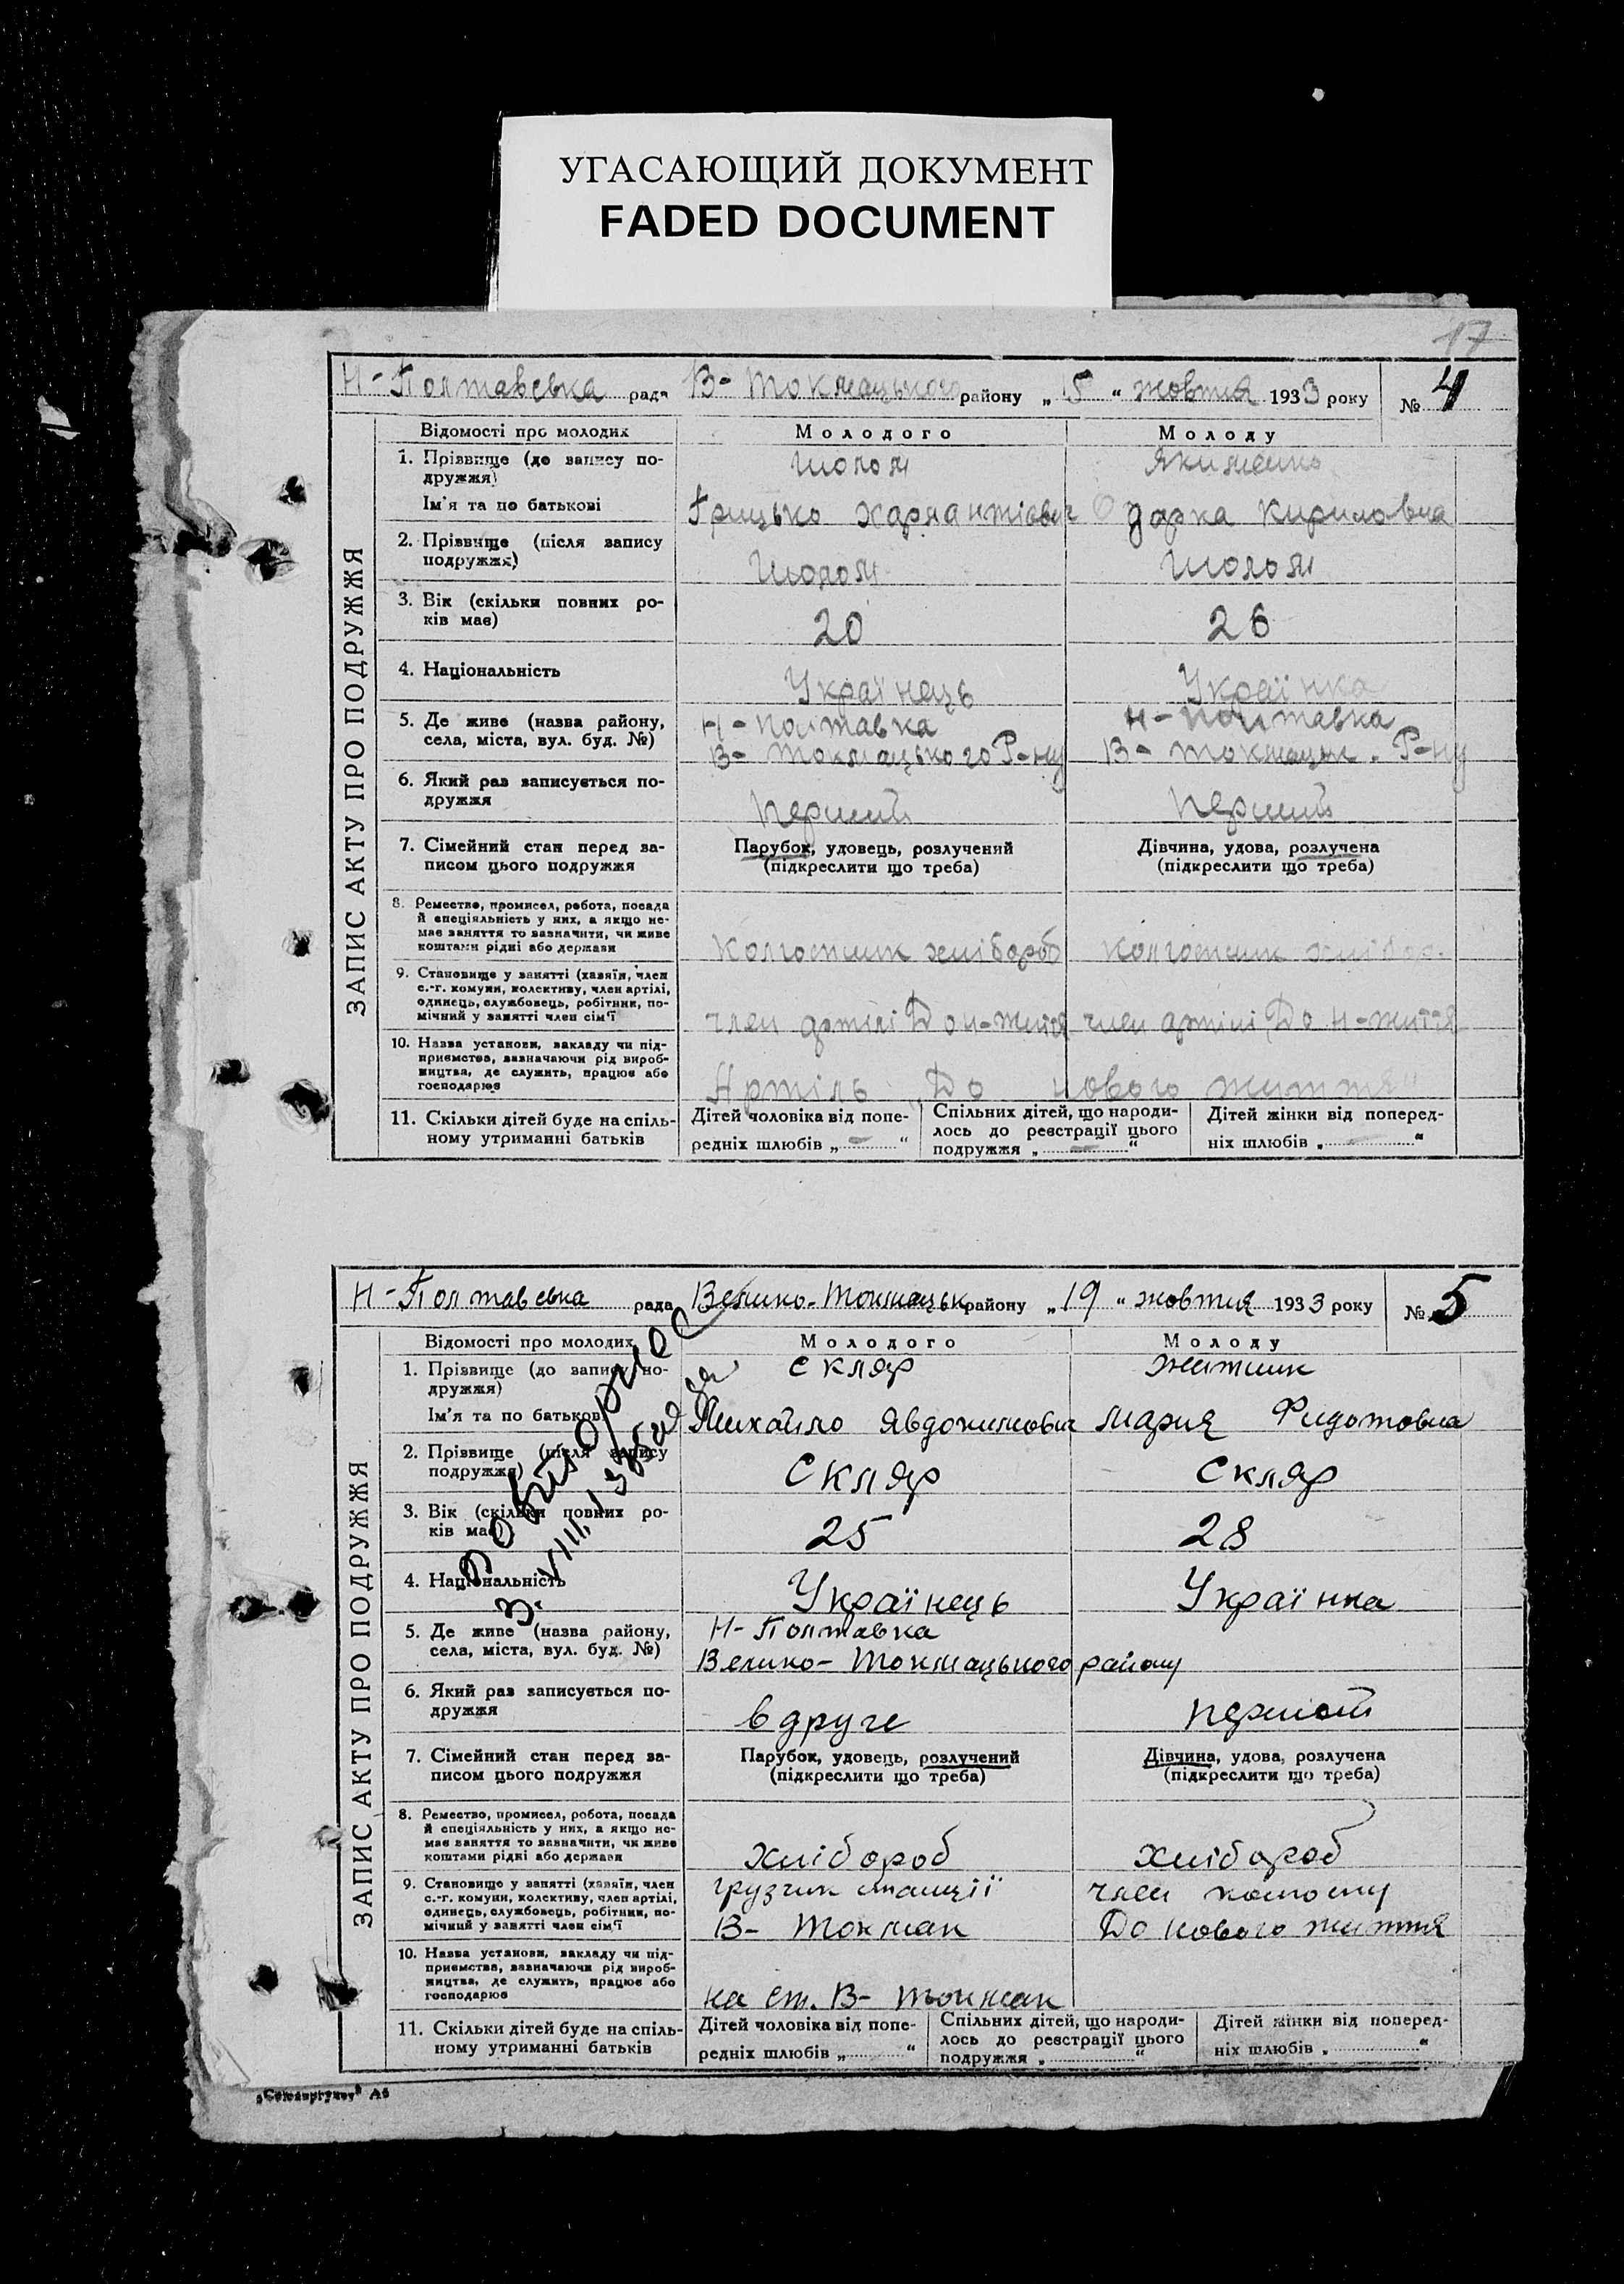 УГАСАЮЩИЙ ДОКУМЕНТ
FADED DOCUMENT
17
Н-Полтавська рада В-Токмацького району „15“ жовтня 1933 року № 4
ЗАПИС АКТУ ПРО ПОДРУЖЖЯ
Відомості про молодих Молодого Молоду
1. Прізвище (до запису подружжя) Шолом Якименко
Ім'я та по батькові Грицько Одарка Кириловна
2. Прізвище (після запису подружжя) Шолом Шолом
3. Вік (скільки повних років має) 20 26
4. Національність Українець Українка
5. Де живе (назва району, Н-Полтавка Н-Полтавка
села, міста, вул. буд. №) В-Токмацького Р-ну В-Токмацьк. Р-ну
6. Який раз записується подружжя Перший Перший
7. Сімейний стан перед за- Парубок, удовець, розлучений Дівчина, удова, розлучена
писом цього подружжя (підкреслити що треба) (підкреслити що треба)
8. Ремество, промисел, робота, посада
й спеціяльність у них, а якщо не-
має заняття то зазначити, чи живе
коштами рідні або держави Колгоспник хлібороб Колгоспник хлібор.
9. Становище у занятті (хазяїн, член
с.-г. комуни, колективу, член артілі,
одинець, службовець, робітник, по-
мічний у занятті член сім'ї член артілі До н-життя член артілі До н-життя
10. Назва установи, закладу чи під-
приємства, зазначаючи рід вироб-
ництва, де служить, працює або
господарює Артіль „До нового життя“
11. Скільки дітей буде на спіль- Дітей чоловіка від попе- Спільних дітей, що народи- Дітей жінки від поперед-
ному утриманні батьків редніх шлюбів „ — “ лось до реєстрації цього подружжя „ — “ ніх шлюбів „ — “
Н-Полтавська рада Велико-Токмацьк району „19“ жовтня 1933 року № 5
ЗАПИС АКТУ ПРО ПОДРУЖЖЯ
Відомості про молодих Молодого Молоду
1. Прізвище (до запису подружжя) Скляр Житник
Ім'я та по батькові Михайло Явдокимович Мария Фидотовна
2. Прізвище (після запису подружжя) Скляр Скляр
3. Вік (скільки повних років має) 25 28
4. Національність Українець Українка
5. Де живе (назва району, Н-Полтавка
села, міста, вул. буд. №) Велико-Токмацького району
6. Який раз записується подружжя вдруге перший
7. Сімейний стан перед за- Парубок, удовець, розлучений Дівчина, удова, розлучена
писом цього подружжя (підкреслити що треба) (підкреслити що треба)
8. Ремество, промисел, робота, посада
й спеціяльність у них, а якщо не-
має заняття то зазначити, чи живе
коштами рідні або держави хлібороб хлібороб
9. Становище у занятті (хазяїн, член
с.-г. комуни, колективу, член артілі, грузчик станції член
одинець, службовець, робітник, по-
мічний у занятті член сім'ї В-Токмак До нового життя
10. Назва установи, закладу чи під-
приємства, зазначаючи рід вироб-
ництва, де служить, працює або
господарює на ст. В-Токмак
11. Скільки дітей буде на спіль- Дітей чоловіка від попе- Спільних дітей, що народи- Дітей жінки від поперед-
ному утриманні батьків редніх шлюбів „ “ лось до реєстрації цього подружжя „ “ ніх шлюбів „ “